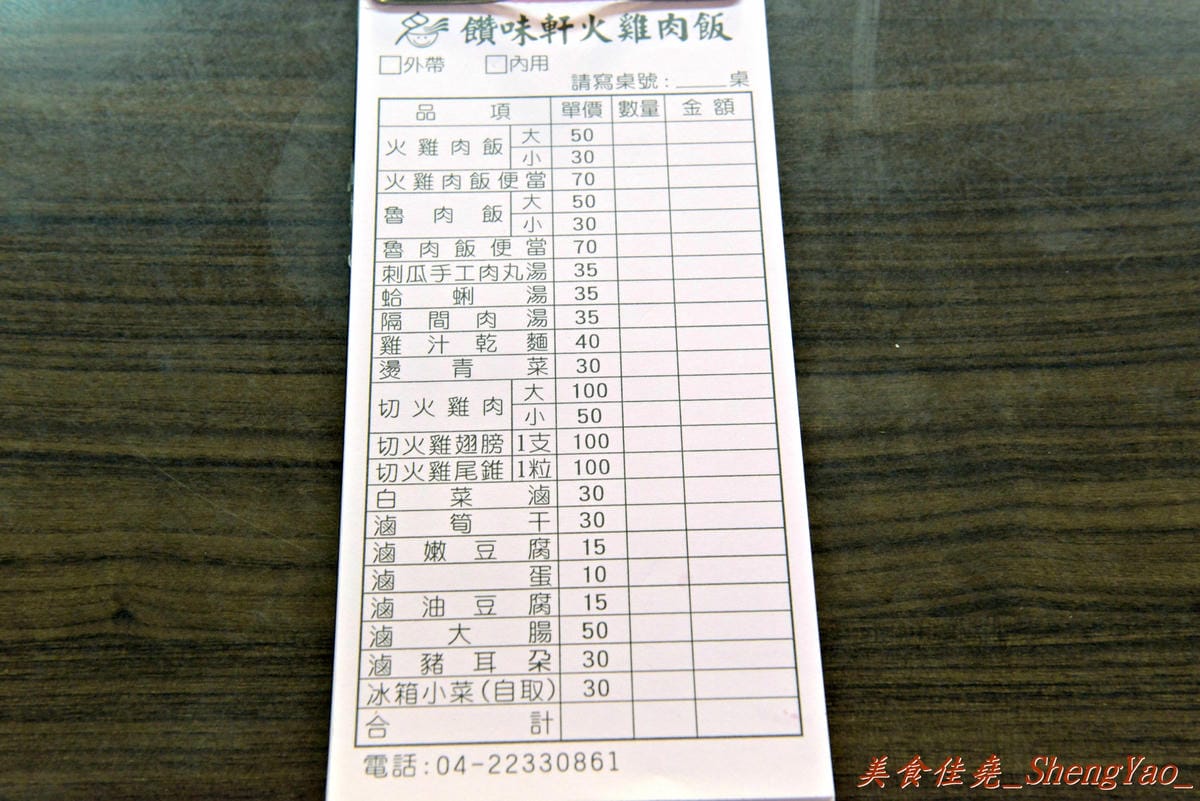 饡味軒火雞肉飯
□外帶 □內用
請寫桌號:____桌
品項 單價 數量 金額
火雞肉飯 大 50
小 30
火雞肉飯便當 70
魯肉飯 大 50
小 30
魯肉飯便當 70
刺瓜手工肉丸湯 35
蛤蜊湯 35
隔間肉湯 35
雞汁乾麵 40
燙青菜 30
切火雞肉 大 100
小 50
切火雞翅膀 1支 100
切火雞尾錐 1粒 100
白菜滷 30
滷筍干 30
滷嫩豆腐 15
滷蛋 10
滷油豆腐 15
滷大腸 50
滷豬耳朶 30
冰箱小菜(自取) 30
合計
電話:04-22330861
美食佳堯_ShengYao_